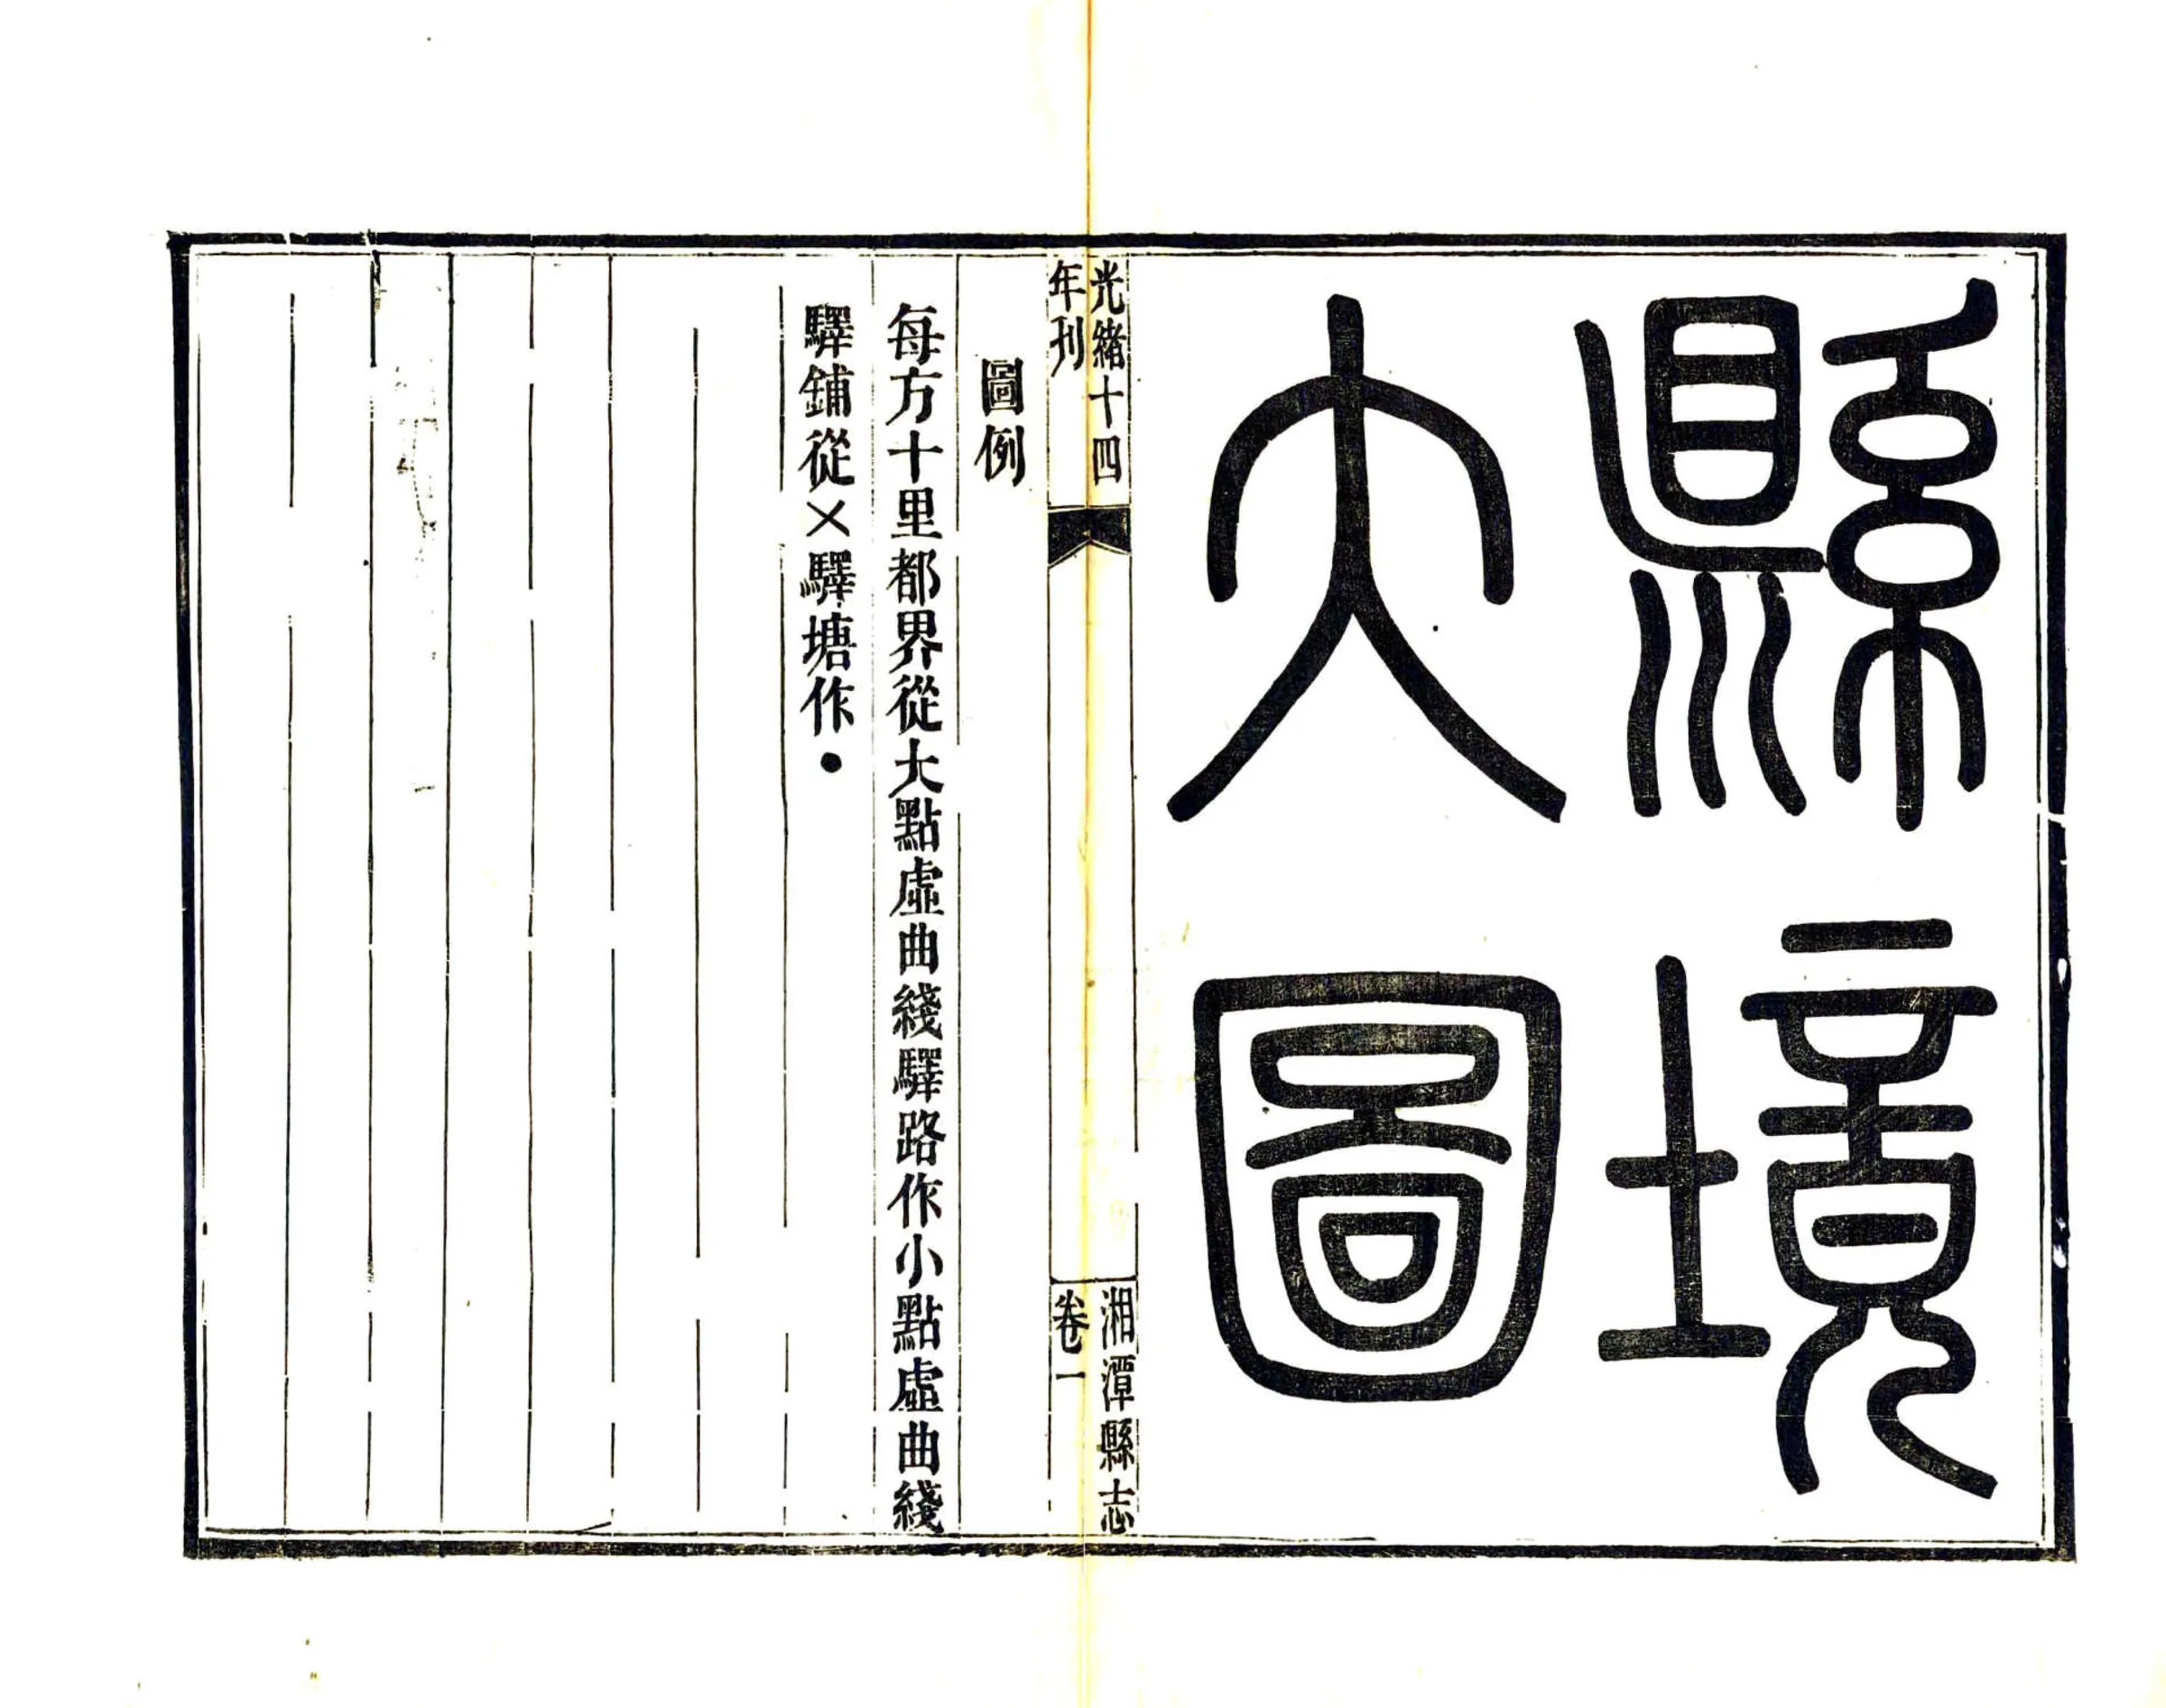 縣境
大圖
光緒十四
年刊
湘潭縣志
卷一
圖例
每方十里都界從大點虛曲綫驛路作小點虛曲綫
驛鋪從×驛塘作●